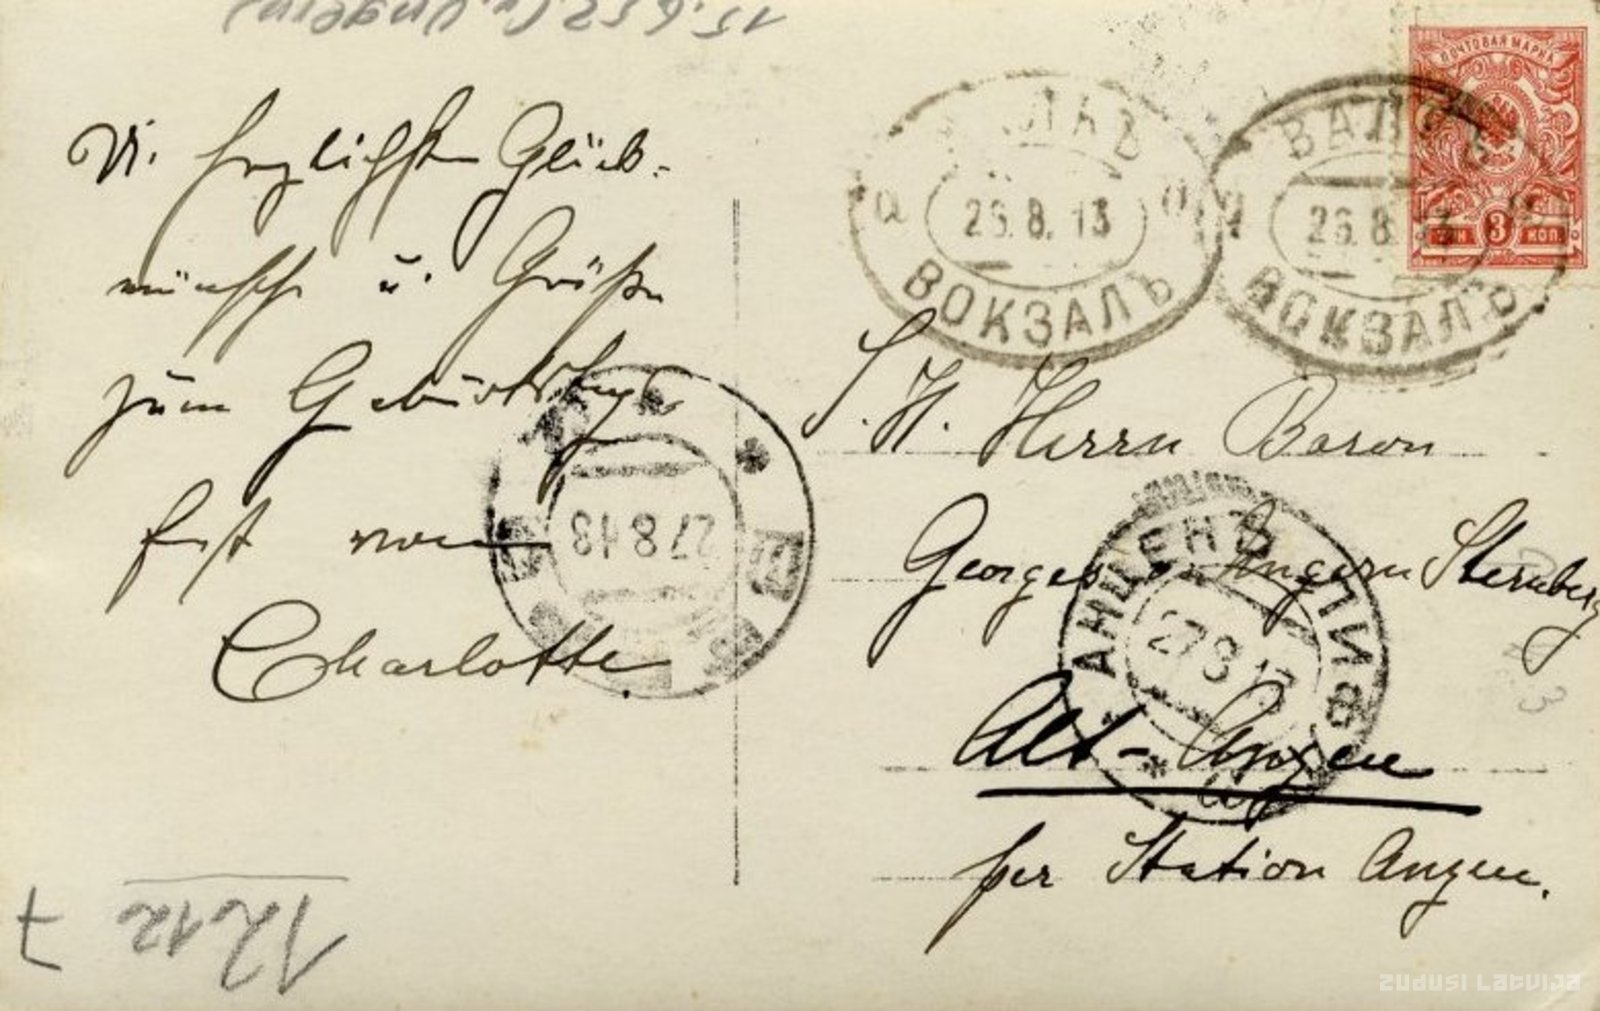 15.6.52 (v. Ungern)
Di. herzlichsten Glück-
wünsche u. Grüße
zum Geburtstags
fest von
Charlotte.
ПОЧТОВАЯ МАРКА
3 КОП
ВАЛКЪ
26.8.13
ВОКЗАЛЪ
26.8.13
ВОКЗАЛЪ
S. H. Herrn Baron
Georges v. Ungern Sternberg
Alt-Anzen
per Station Anzen.
27 8 13
АНЦЕНЪ ЛИФ
27 8 13
12.12
7
zudusi Latvija